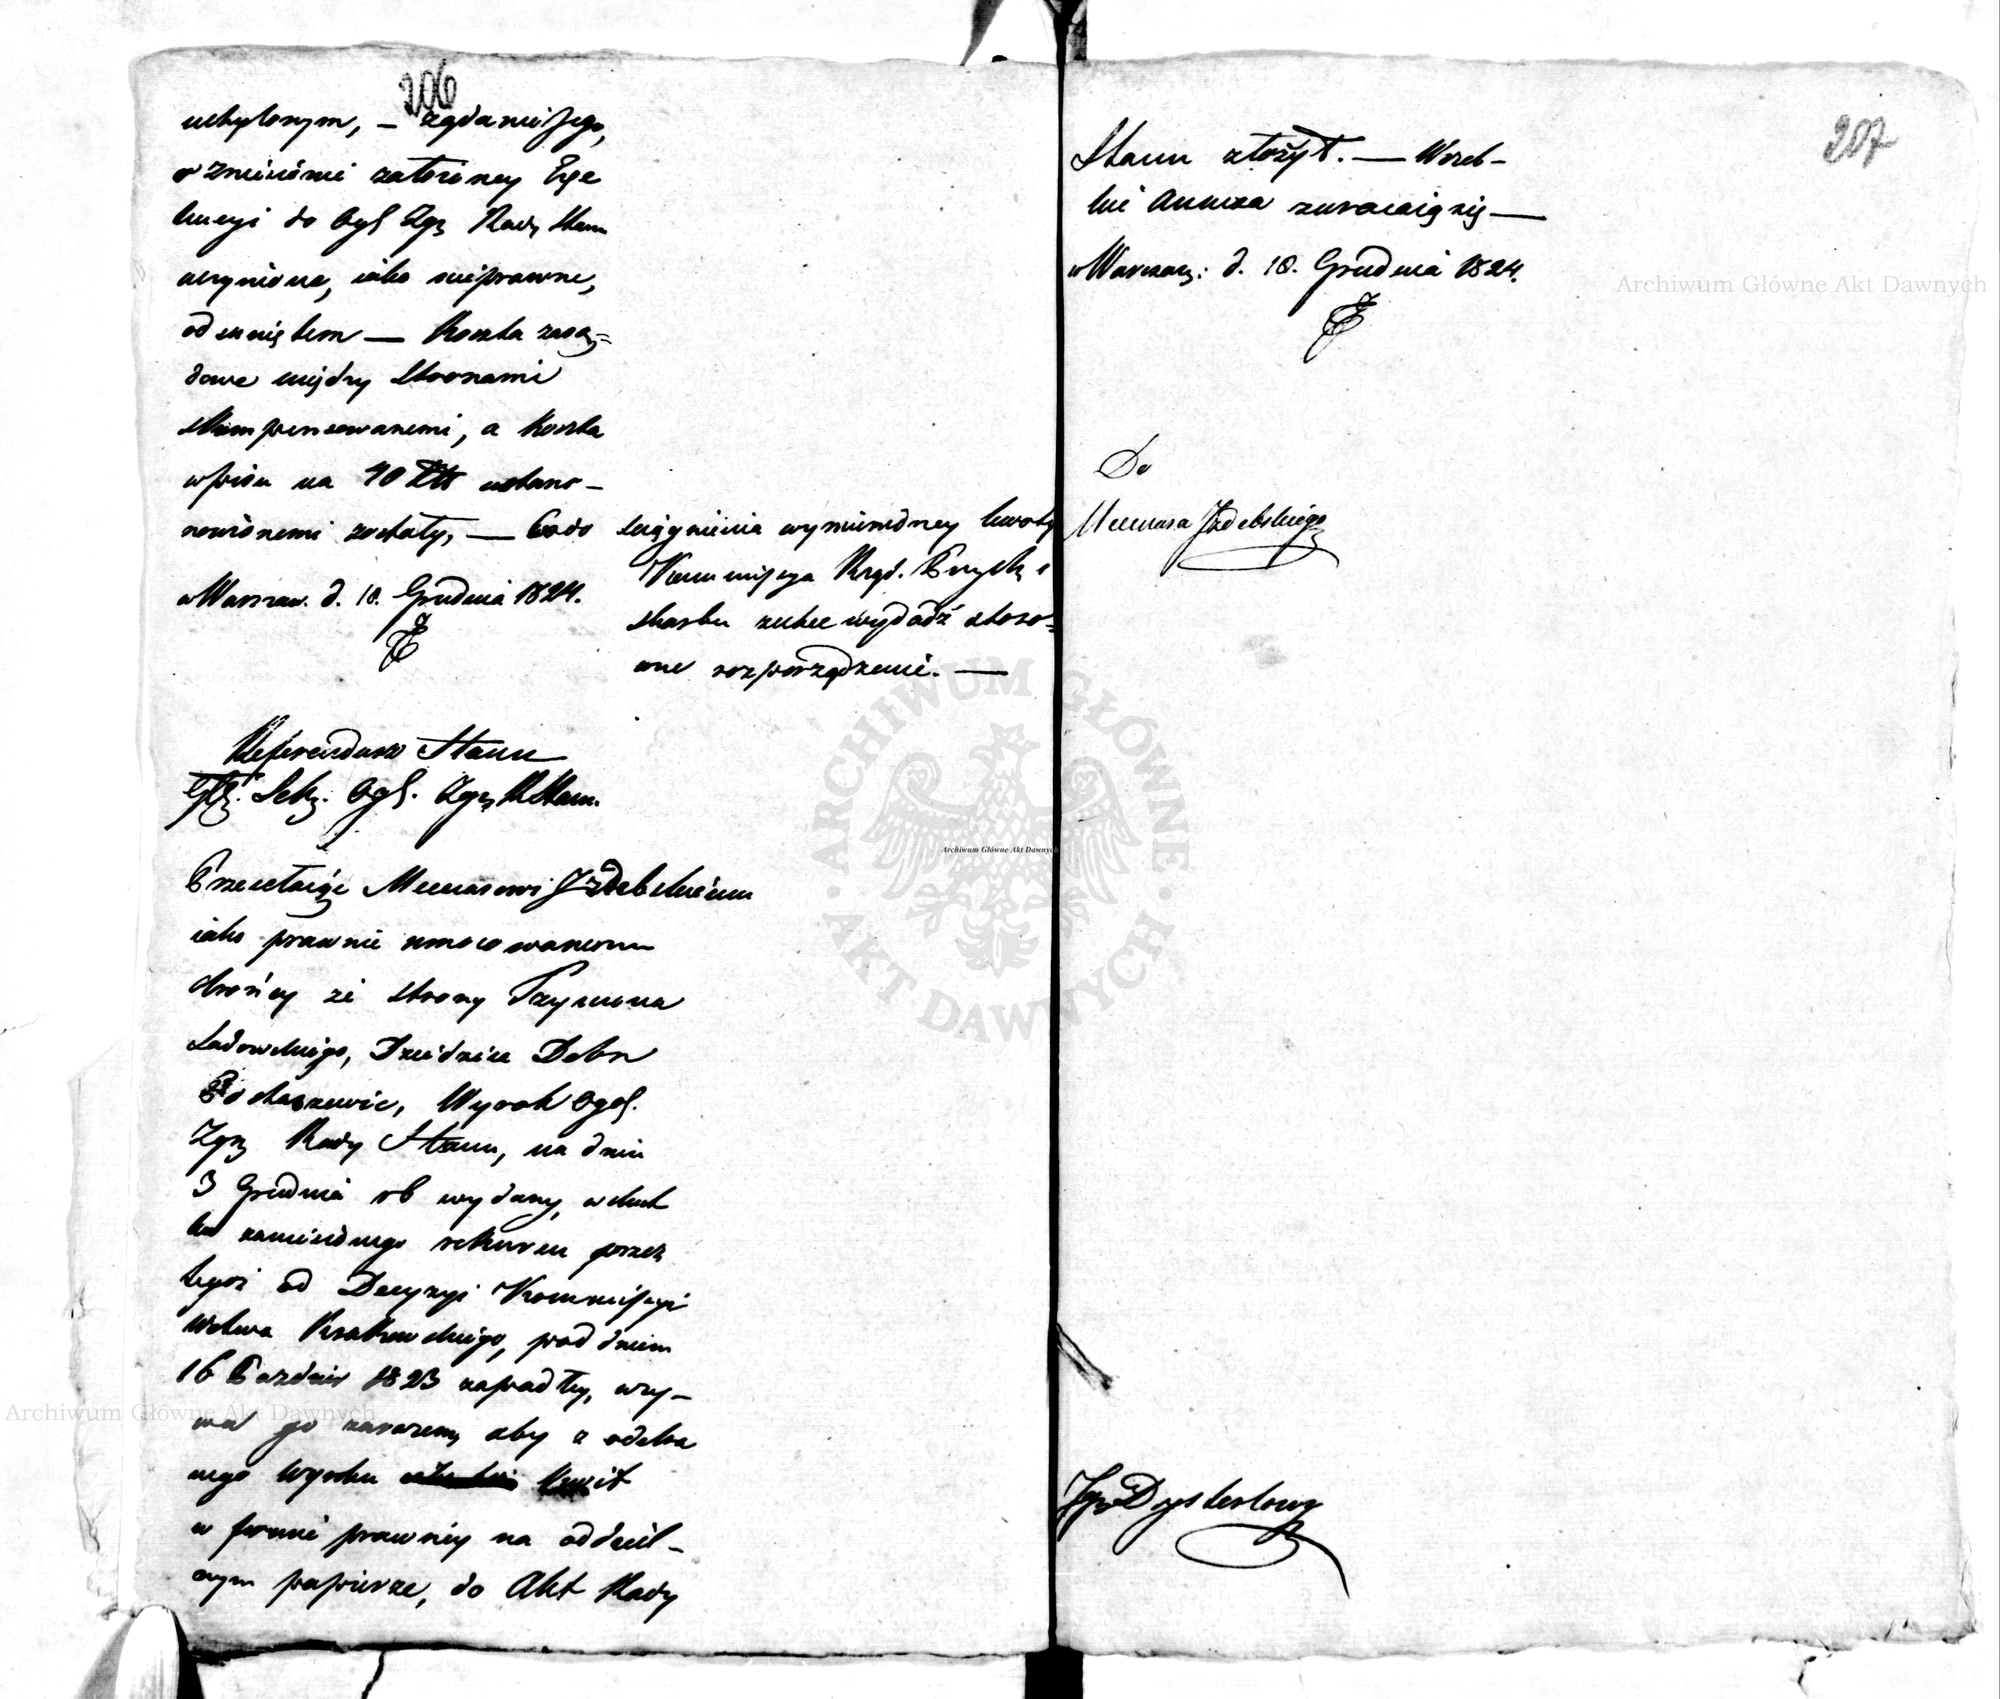 206
uchylonym, — żądanie Jego,
o zniesienie zatoczoney Exe
kucyi do Ogl Zgr Rady Stanu
uczynione, iako nieprawne,
odsuniękem — Koszta zasą=
dowe między Stronami
skompensowanemi, a Koszta
wpisu na 40 Zł ustano-
nowionemi zostały, — Co do
w Warszaw. d. 10. Grudnia 1824.
ściągnienia wymienioney kwoty
Kommissya Rząd. Przych. i
skarbu zechce wydadź stoso=
wne rozporządzenie. —
Referendarz Stanu
Sekr. Ogl. Zgr. R Stanu.
Przesełaiąc Mecenasowi Jzdebskiemu
iako prawnie umocowanemu
obrońcy ze strony Szymona
Ladowskiego, Dziedzica Dobr
Wyrok Ogol.
Zgr Rady Stanu, na dniu
3 Grudnia rb wydany, wskut
ku zaniesionego rekursu przez
tegoż od Decyzyi Kommissyi
Wdztwa Krakowskiego, pod dniem
16 Pazdzier 1823 zapadłey, wzy-
wa go zarazem, aby z odebra
nego Wyroku Kwit
w formie prawney na oddziel-
nym papierze, do Akt Rady
207
Stanu złożył. — Wszel-
kie Annexa zwracaią się —
w Warszaw: d. 10. Grudnia 1824.
Do
Mecenasa Jzdebskiego
Archiwum Główne Akt Dawnych
Archiwum Główne Akt Dawnych
Archiwum Główne Akt Dawnych
ARCHIWUM GŁÓWNE AKT DAWNYCH